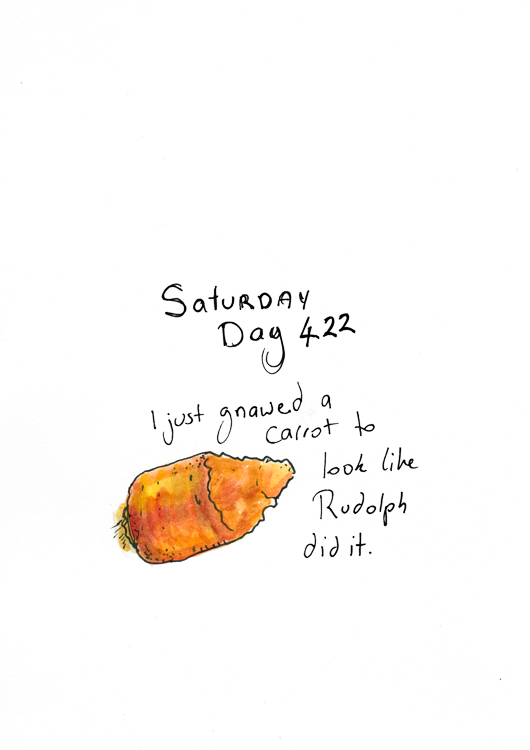 Saturday
Day 422
I just gnawed a
carrot to
look like
Rudolph
did it.